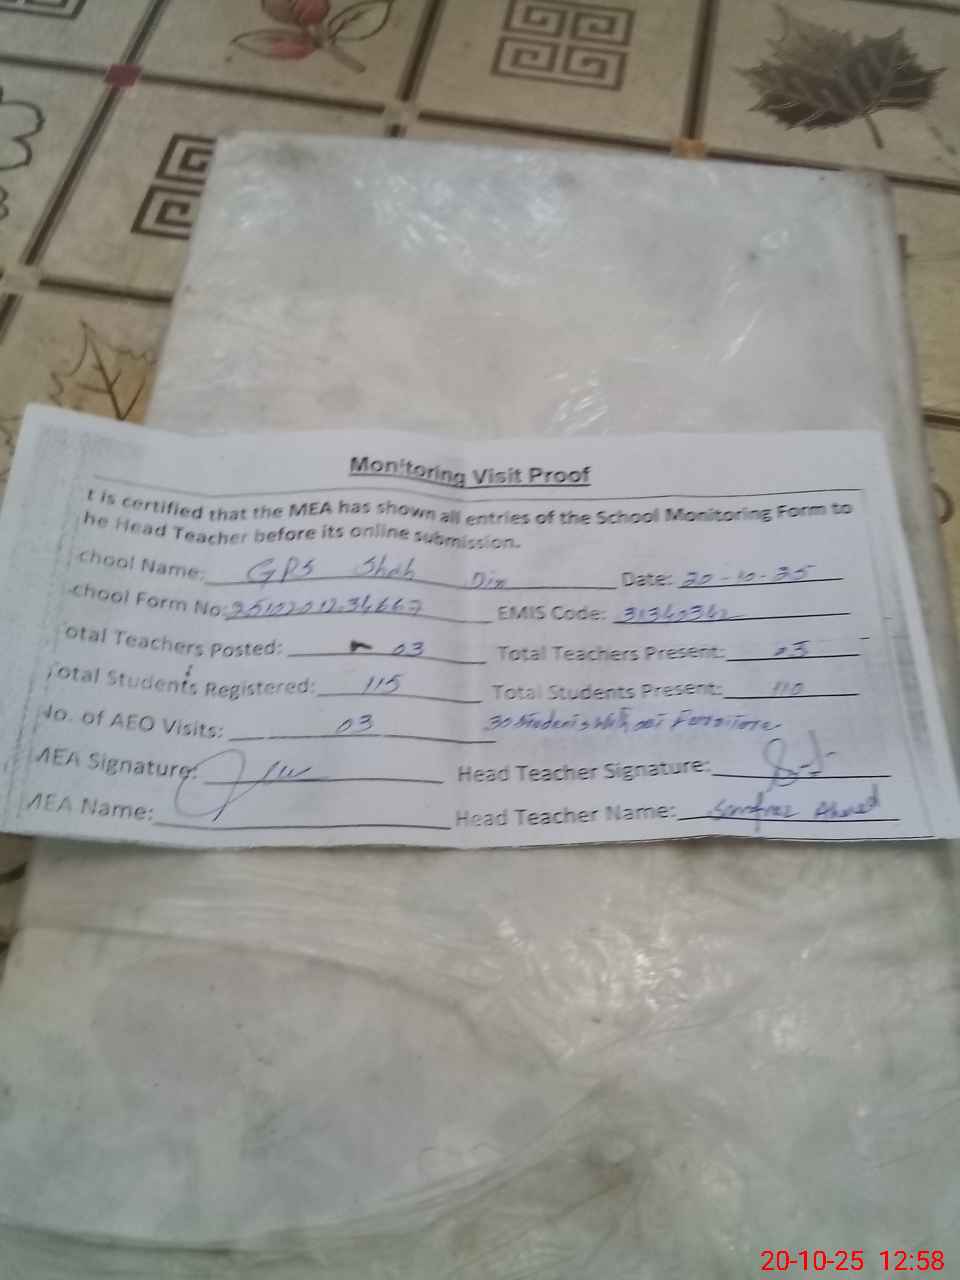 Monitoring Visit Proof
t is certified that the MEA has shown all entries of the School Monitoring Form to
he Head Teacher before its online submission.
chool Name: GPS Shah Din Date: 20-10-25
chool Form No: EMIS Code:
otal Teachers Posted: 03 Total Teachers Present: 03
Total Students Registered: 115 Total Students Present: 110
No. of AEO Visits: 03 30 Students With out Furniture
MEA Signature: Head Teacher Signature:
MEA Name: Head Teacher Name: Sarafraz Ahmed
20-10-25 12:58